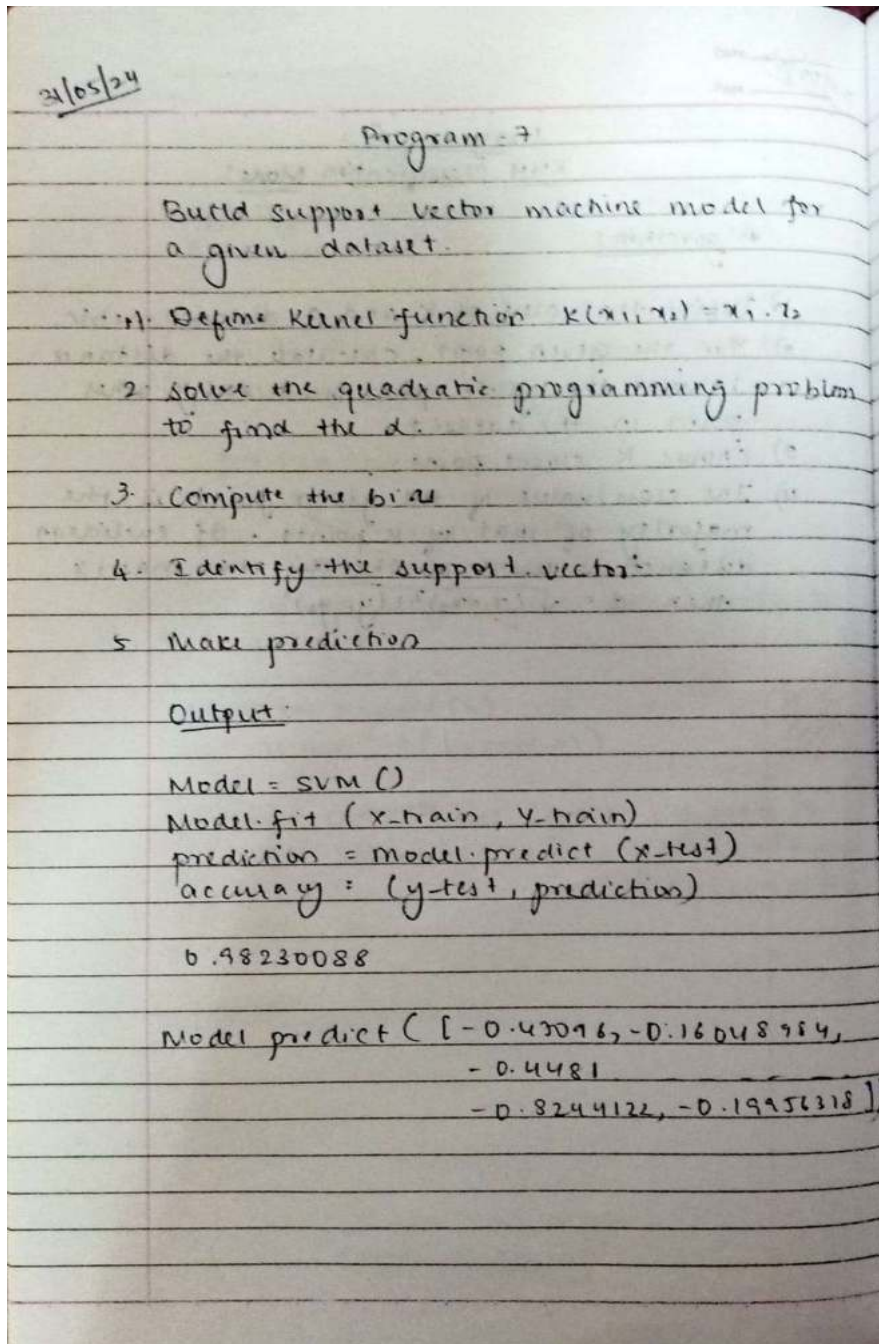 31/05/24
Program - 7
Build support vector machine model for
a given dataset.
1. Define Kernel function K(x1, x2) = x1 . x2
2. solve the quadratic programming problem
to find the α.
3. Compute the bias
4. Identify the support vector
5 Make prediction
Output:
Model = SVM ()
Model.fit (x-train, y-train)
prediction = model.predict (x-test)
accuracy = (y-test, prediction)
0.98230088
Model predict ( [-0.47096, -0.16048984,
-0.4481
-0.8244122, -0.19956318]